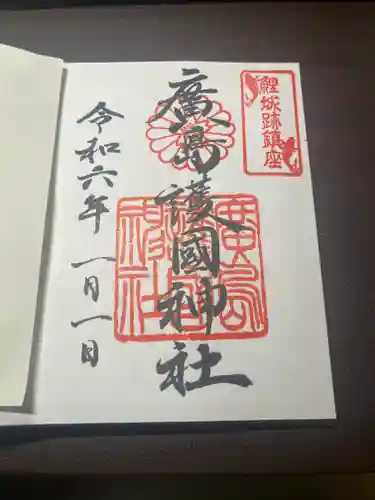 鯉城跡鎮座
廣島護國神社
令和六年 一月一日
廣島護國神社